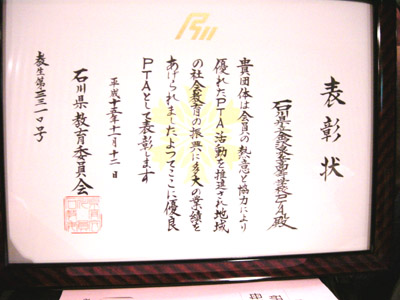 表彰状
石川県立金沢泉丘高等学校PTA殿
貴団体は会員の熱意と協力により
優れたPTA活動を推進され地域
の社会教育の振興に多大の業績を
あげられましたよってここに優良
PTAとして表彰します
平成十五年十一月十二日
石川県教育委員会
教生第三三一〇号